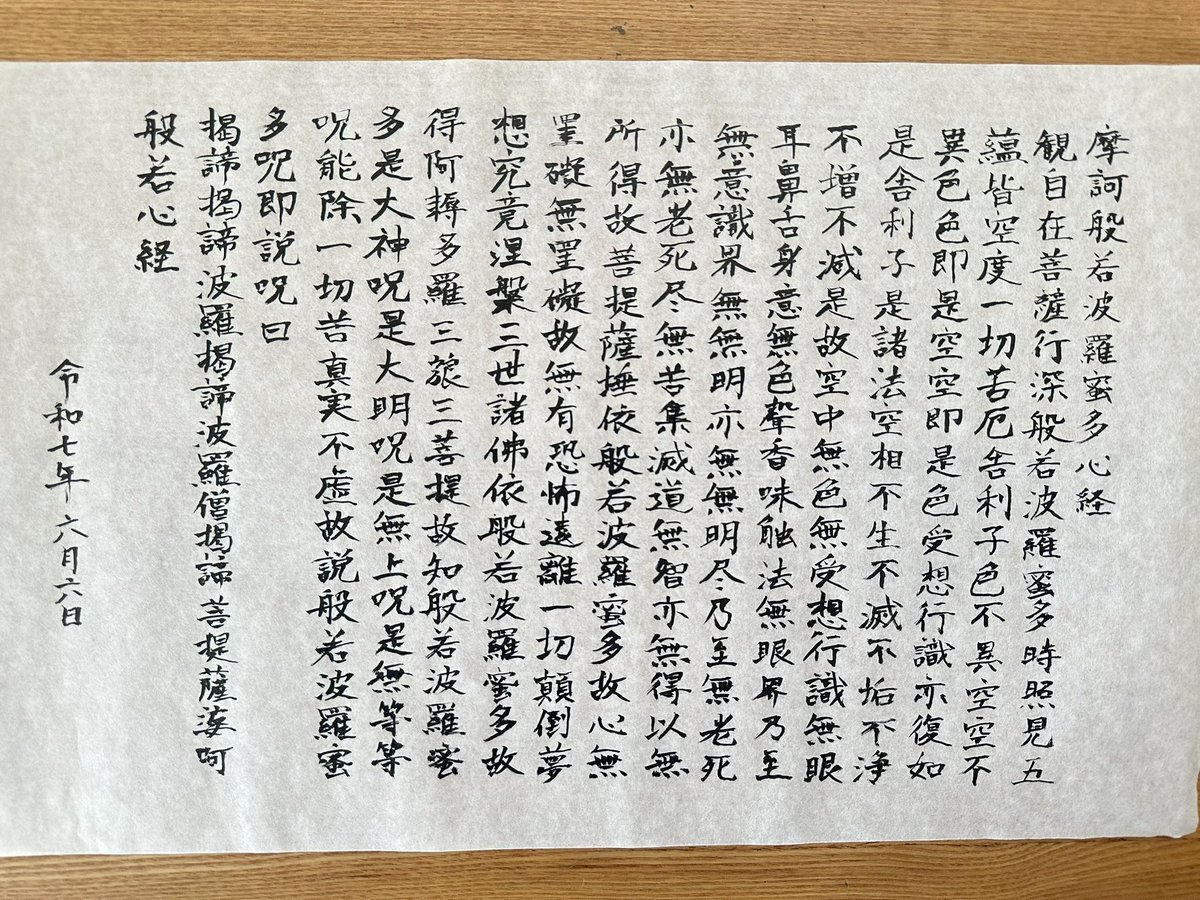 摩訶般若波羅蜜多心経
観自在菩薩行深般若波羅蜜多時照見五
蘊皆空度一切苦厄舎利子色不異空空不
異色色即是空空即是色受想行識亦復如
是舎利子是諸法空相不生不滅不垢不浄
不増不減是故空中無色無受想行識無眼
耳鼻舌身意無色聲香味触法無眼界乃至
無意識界無無明亦無無明尽乃至無老死
亦無老死尽無苦集滅道無智亦無得以無
所得故菩提薩埵依般若波羅蜜多故心無
罣礙無罣礙故無有恐怖遠離一切顛倒夢
想究竟涅槃三世諸佛依般若波羅蜜多故
得阿耨多羅三藐三菩提故知般若波羅蜜
多是大神呪是大明呪是無上呪是無等等
呪能除一切苦真実不虚故説般若波羅蜜
多呪即説呪曰
掲諦掲諦波羅掲諦波羅僧掲諦菩提薩婆呵
般若心経
令和七年六月六日